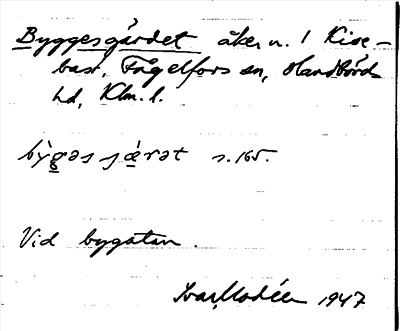 Byggesgärdet åker n. 1 Kise-
bast, Fågelfors sn, Handbörds
hd, Klm. l.
bỳgəs jæ̀rət s. 165.
Vid bygatan.
Ivar Modéer 1947